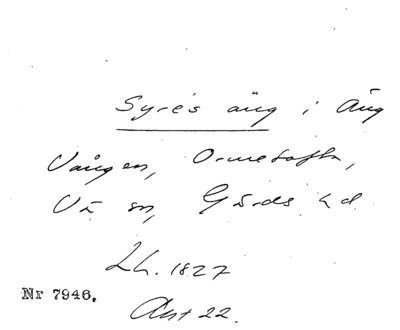 Syre's äng i Äng
Vången, Ormetofta,
Vä sn, Gärds hd
Lh. 1827
Nr 7946.
Akt 22.